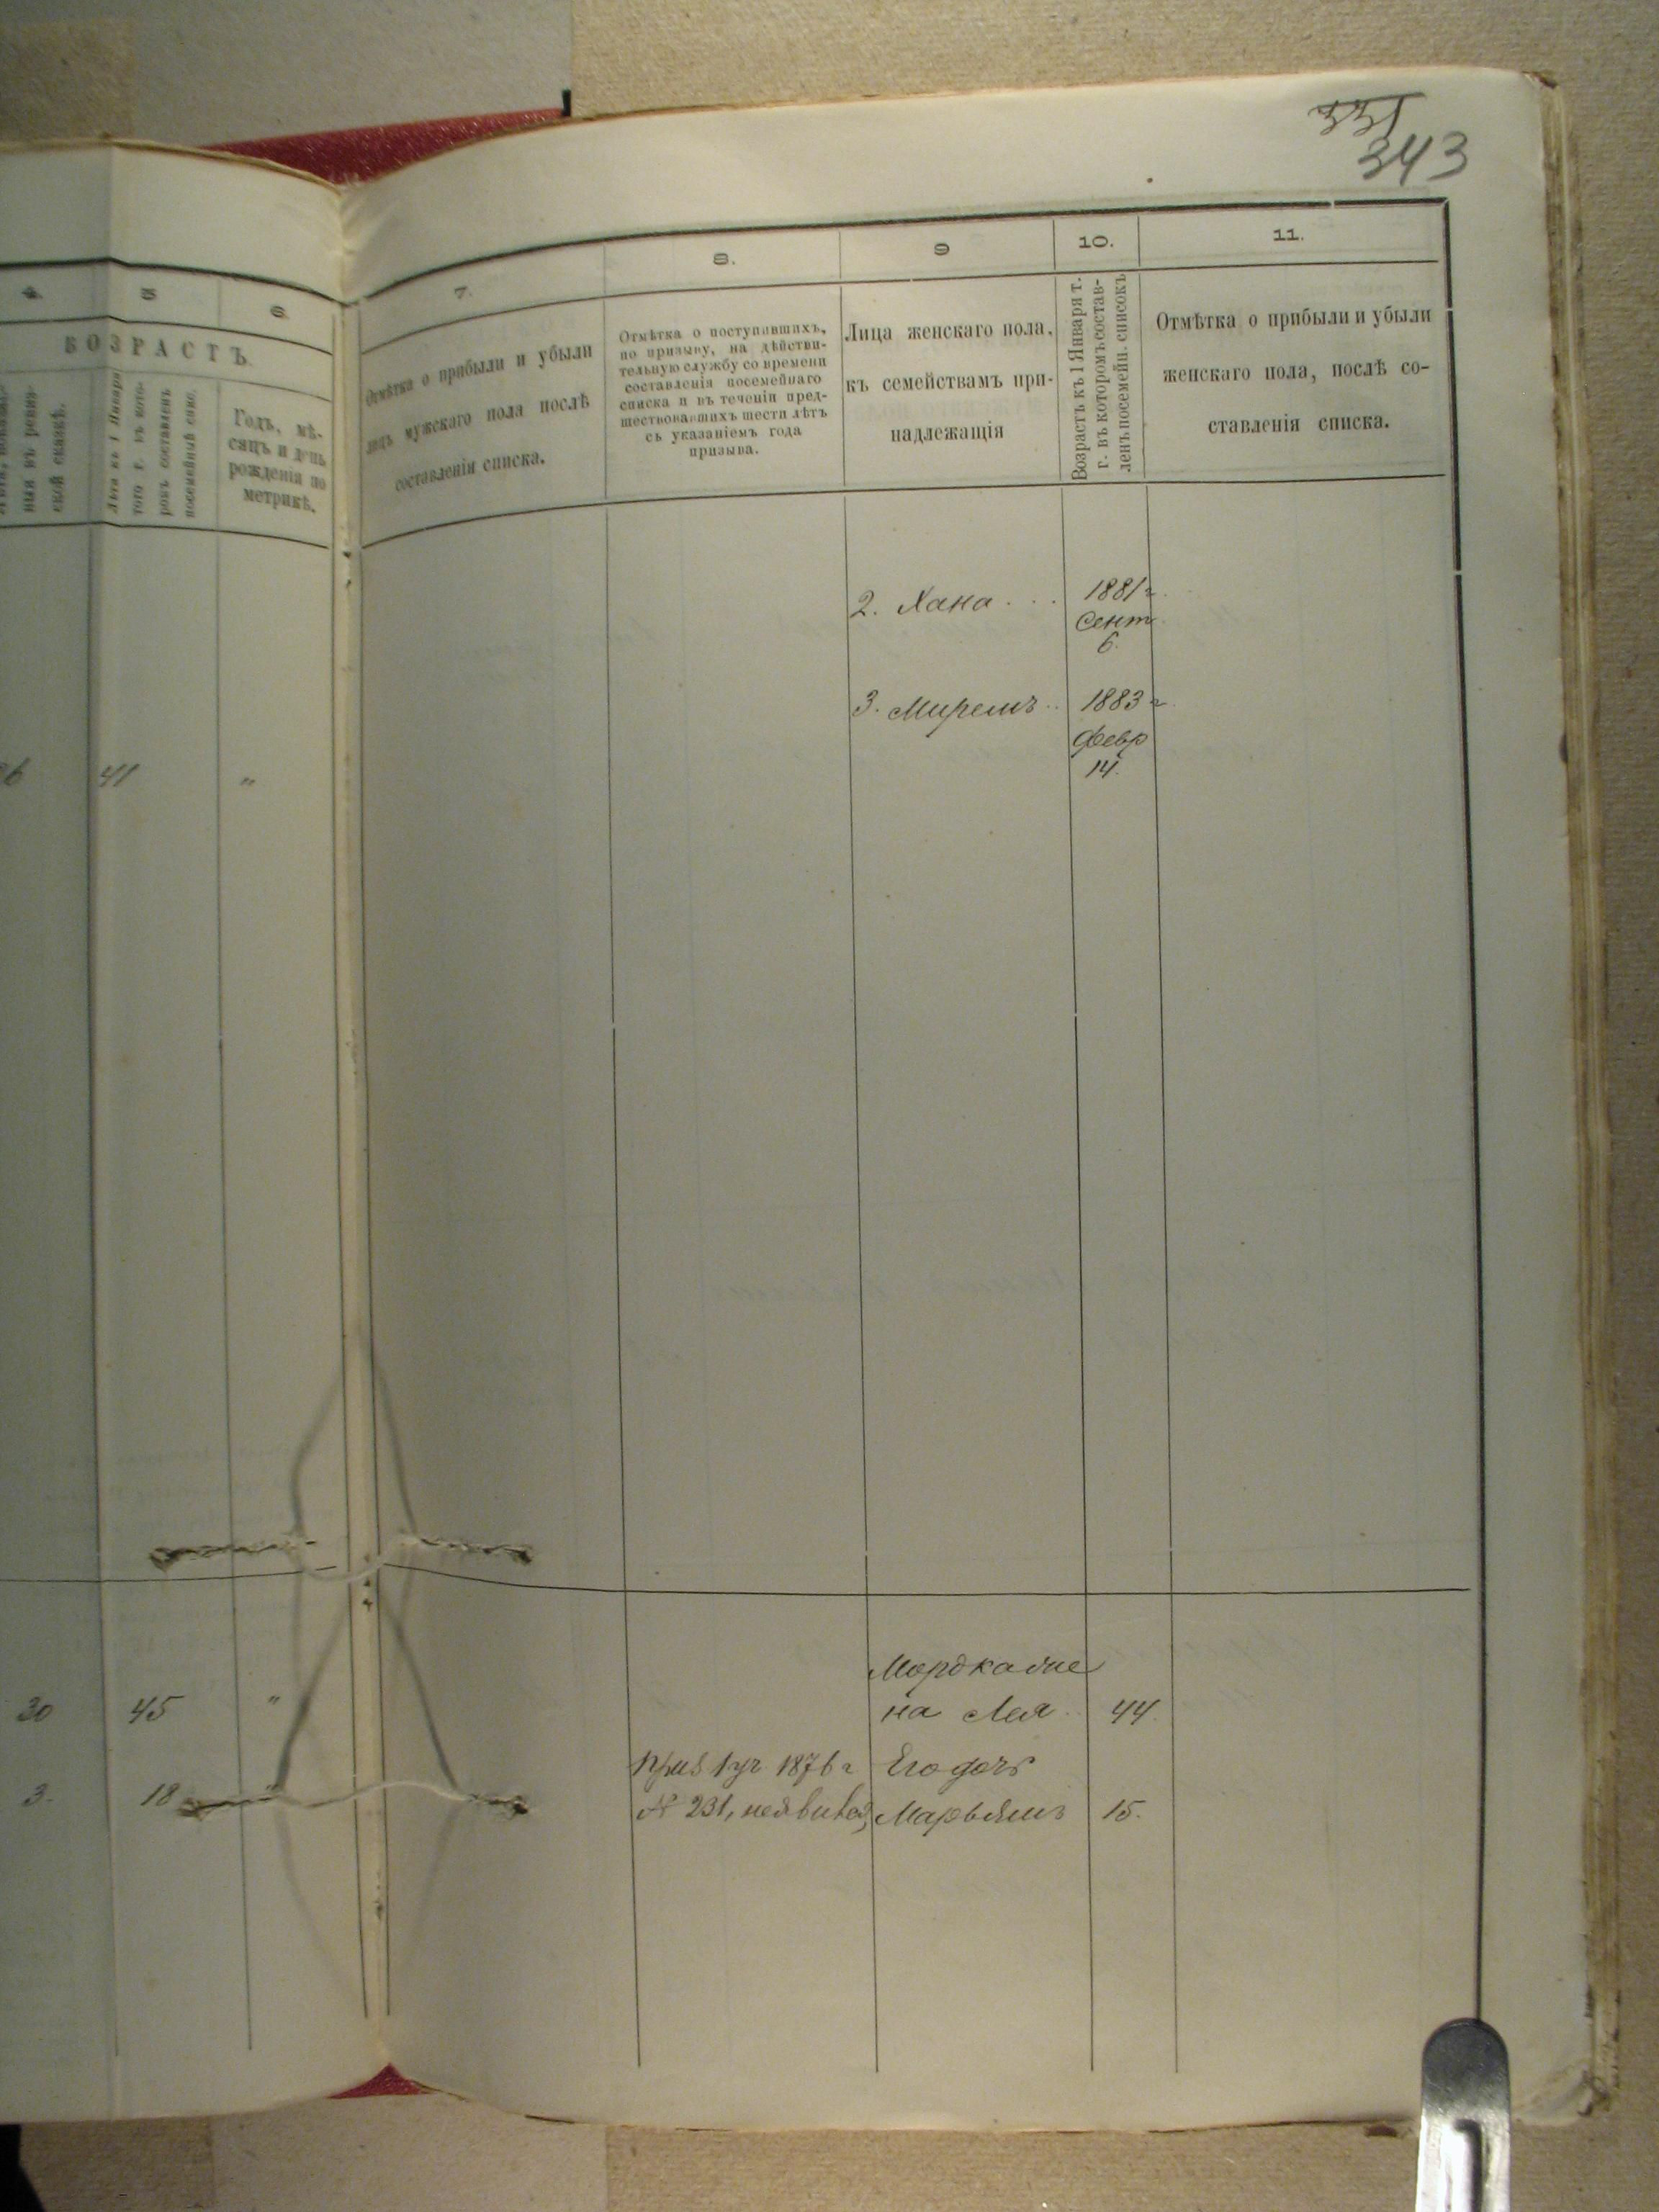 331
343
4. 5 6.
ВОЗРАСТЪ.
ныя въ ревиз-
ской сказкѣ.
Лѣта къ 1 Января
того г. въ кото-
ромъ составленъ
посемейный спис.
Годъ, мѣ-
сяцъ и день
рожденія по
метрикѣ.
7.
Отмѣтка о прибыли и убыли
лицъ мужскаго пола послѣ
составленія списка.
8.
Отмѣтка о поступившихъ,
по призыву, на дѣйстви-
тельную службу со времени
составленія посемейнаго
списка и въ теченіи пред-
шествовавшихъ шести лѣтъ
съ указаніемъ года
призыва.
9
Лица женскаго пола,
къ семействамъ при-
надлежащія
10.
Возрастъ къ 1 Января т.
г. въ которомъ состав-
ленъ посемейн. списокъ
11.
Отмѣтка о прибыли и убыли
женскаго пола, послѣ со-
ставленія списка.
2. Хана . . . 1881 г.
Сент.
6.
3. Миремъ . . 1883 г.
Февр
14.
26 41 "
Мордка жи
30 45 " на Лея . 44.
Приз 1 уч 1876 г Его дочь
3. 18 " № 231, неявився, Марьямъ 15.